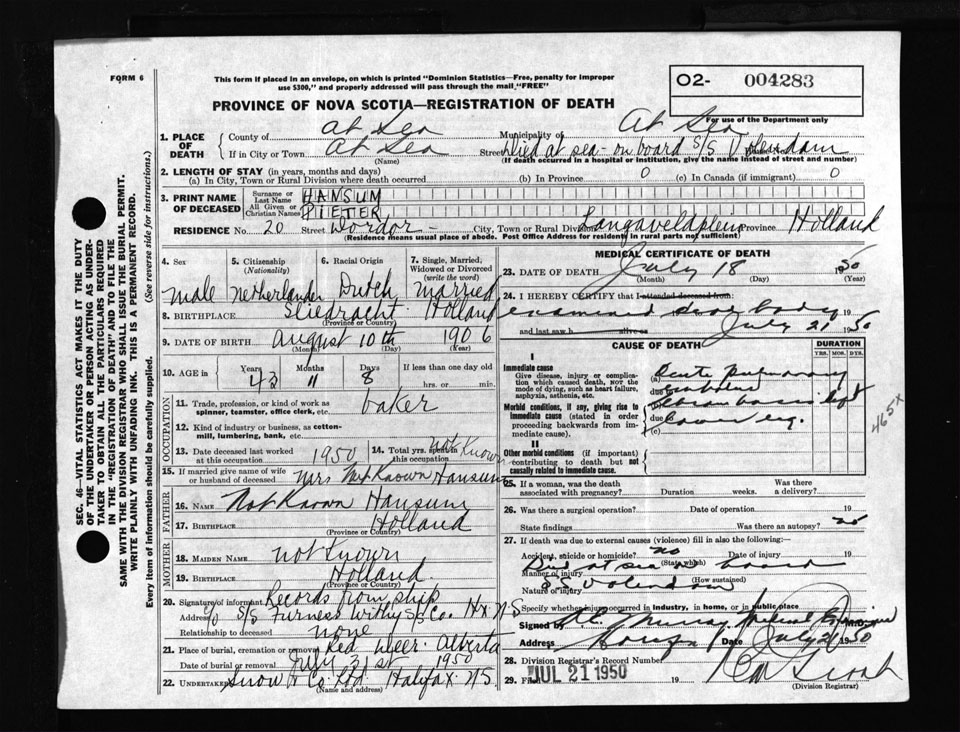 FORM 6
This form if placed in an envelope, on which is printed "Dominion Statistics—Free, penalty for improper
use $300," and properly addressed will pass through the mail "FREE"
O2- 004283
For use of the Department only
PROVINCE OF NOVA SCOTIA—REGISTRATION OF DEATH
SEC. 46—VITAL STATISTICS ACT MAKES IT THE DUTY
OF THE UNDERTAKER OR PERSON ACTING AS UNDER-
TAKER TO OBTAIN ALL THE PARTICULARS REQUIRED
IN THE "REGISTRATION OF DEATH" AND TO FILE THE
SAME WITH THE DIVISION REGISTRAR WHO SHALL ISSUE THE BURIAL PERMIT.
WRITE PLAINLY WITH UNFADING INK. THIS IS A PERMANENT RECORD.
Every item of information should be carefully supplied. (See reverse side for instructions.)
1. PLACE OF DEATH
County of at Sea Municipality of At Sea
If in City or Town At Sea Street Died at sea - on board S/S Volendam
(Name) (If death occurred in a hospital or institution, give the name instead of street and number)
2. LENGTH OF STAY (in years, months and days)
(a) In City, Town or Rural Division where death occurred (b) In Province 0 (c) In Canada (if immigrant) 0
3. PRINT NAME OF DECEASED
Surname or Last Name HANSUM
All Given or Christian Names PIETER
RESIDENCE No. 20 Street Dordor - City, Town or Rural Division Langaveldplein Province Holland
(Residence means usual place of abode. Post Office Address for residents in rural parts not sufficient)
4. Sex 5. Citizenship (Nationality) 6. Racial Origin 7. Single, Married, Widowed or Divorced (write the word)
male Netherlander Dutch married
8. BIRTHPLACE Sliedracht. Holland
(Province or Country)
9. DATE OF BIRTH August 10th 1906
(Month) (Day) (Year)
10. AGE in Years 43 Months 11 Days 8 If less than one day old
hrs. or min.
OCCUPATION
11. Trade, profession, or kind of work as spinner, teamster, office clerk, etc. baker
12. Kind of industry or business, as cotton-mill, lumbering, bank, etc.
13. Date deceased last worked at this occupation 1950 14. Total yrs. spent in this occupation not known
15. If married give name of wife or husband of deceased Mrs Not Known Hansum
FATHER
16. NAME Not Known Hansum
17. BIRTHPLACE Holland
(Province or Country)
MOTHER
18. MAIDEN NAME not known
19. BIRTHPLACE Holland
(Province or Country)
20. Signature of informant Records from ship
Address c/o S/S Furness Withy S/S Co. Hx N.S
Relationship to deceased none
21. Place of burial, cremation or removal Red Deer. Alberta
Date of burial or removal July 21st 1950
22. Undertaker Snow & Co Ltd. Halifax. N.S.
(Name and address)
MEDICAL CERTIFICATE OF DEATH
23. DATE OF DEATH July 18 1950
(Month) (Day) (Year)
24. I HEREBY CERTIFY that I attended deceased from:
examined dead body 19
and last saw h alive on July 21 1950
CAUSE OF DEATH DURATION
YRS. MOS. DYS.
I
Immediate cause
Give disease, injury or complication which caused death, NOT the mode of dying, such as heart failure, asphyxia, asthenia, etc.
(a) Acute pulmonary embolism
Morbid conditions, if any, giving rise to immediate cause (stated in order proceeding backwards from immediate cause.
(b) thrombosis left
(c) lower leg.
465X
II
Other morbid conditions (if important) contributing to death but not causally related to immediate cause.
25. If a woman, was the death associated with pregnancy? Duration weeks. Was there a delivery?
26. Was there a surgical operation? Date of operation 19
State findings Was there an autopsy? no
27. If death was due to external causes (violence) fill in also the following:
Accident, suicide or homicide? no Date of injury 19
(State which)
Manner of injury Died at sea on board
(How sustained)
Nature of injury S.S. Volendam
Specify whether injury occurred in industry, in home, or in public place
Signed by Murray Medical Examiner
Address Date July 21 1950
28. Division Registrar's Record Number
29. Filed JUL 21 1950 19
(Division Registrar)